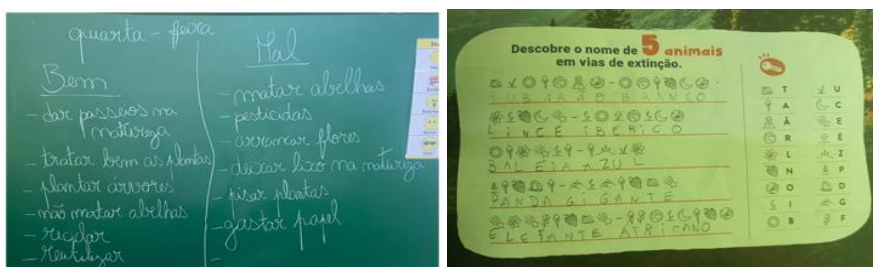 quarta-feira
Bem
- dar passeios na
natureza
- tratar bem as plantas
- plantar árvores
- não matar abelhas
- reciclar
- reutilizar
Mal
- matar abelhas
- pesticidas
- arrancar flores
- deixar lixo na natureza
- pisar plantas
- gastar papel
-
Descobre o nome de 5 animais
em vias de extinção.
TUBARÃO BRANCO
LINCE IBÉRICO
BALEIA AZUL
PANDA GIGANTE
ELEFANTE AFRICANO
T U
A C
Ã E
R É
L Z
N P
O D
I G
B F